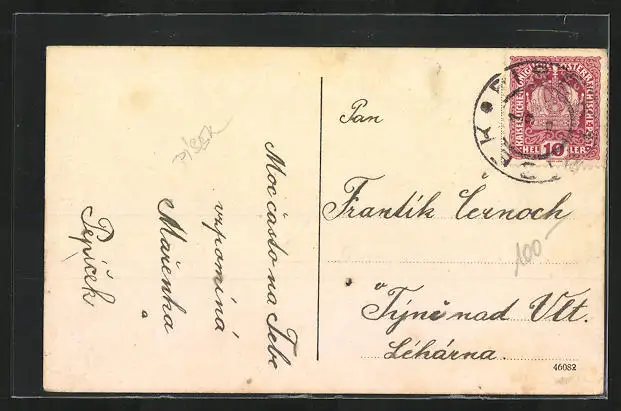 PÍSEK
Moc často na Tebe
vzpomíná
Mařenka
a
Pepíček
Pan
Frantík Černoch
v Týně nad Vlt.
Lékárna.
100
KAISERLICHE KÖNIGLICHE ÖSTERREICHISCHE POST
HELLER
10
46082